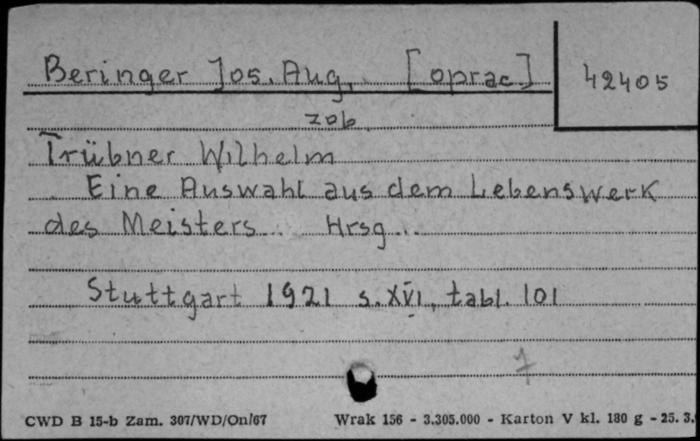 Beringer Jos. Aug. [oprac.]
42405
zob.
Trübner Wilhelm
Eine Auswahl aus dem Lebenswerk
des Meisters... Hrsg...
Stuttgart 1921 s. XVI, tabl. 101
CWD B 15-b Zam. 307/WD/On/67 Wrak 156 - 3.305.000 - Karton V kl. 180 g - 25. 3.